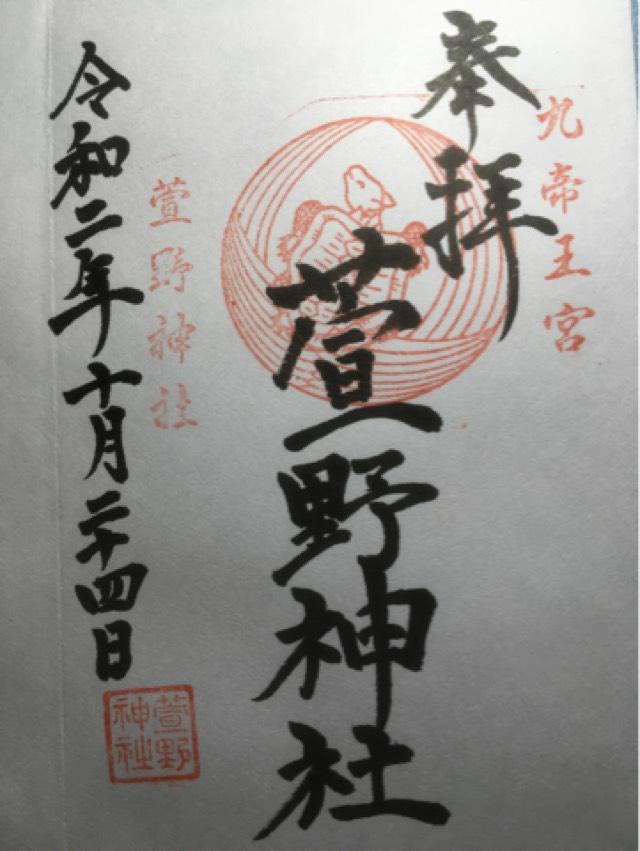 九帝王宮
奉拝
萱野神社
萱野神社
令和二年十月二十四日
萱野
神社